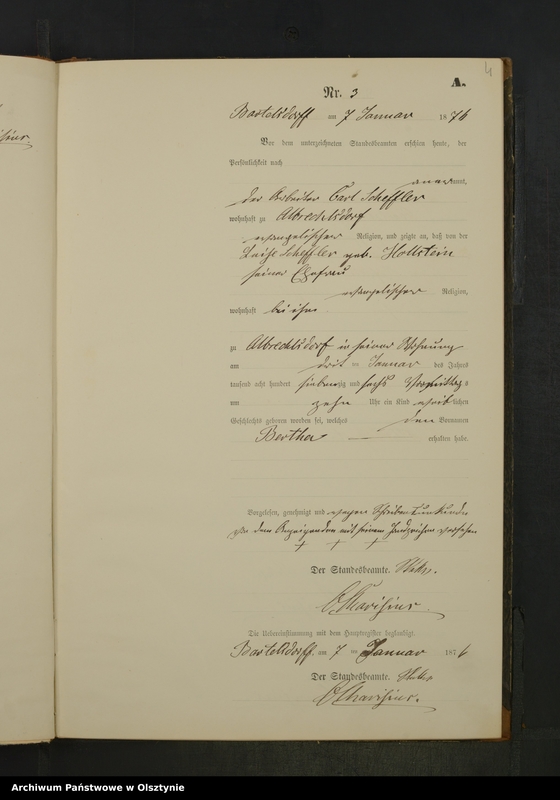 4
A.
Nr. 3
Bartelsdorff am 7 Januar 1876
Vor dem unterzeichneten Standesbeamten erschien heute, der
Persönlichkeit nach
kannt,
der Arbeiter Carl Scheffler
wohnhaft zu Albrechtsdorf
evangelischer Religion, und zeigte an, daß von der
Luise Scheffler geb. Hollstein
seiner Ehefrau
evangelischer Religion,
wohnhaft bei ihm
zu Albrechtsdorf in seiner Wohnung
am drit ten Januar des Jahres
tausend acht hundert siebenzig und sechs Vormittags
um zehn Uhr ein Kind weiblichen
Geschlechts geboren worden sei, welches den Vornamen
Bertha erhalten habe.
Vorgelesen, genehmigt und wegen Schreibensunkunde
von dem Anzeigenden mit seinem Handzeichen versehen
+ + +
Der Standesbeamte.
Die Uebereinstimmung mit dem Hauptregister beglaubigt.
Bartelsdorff am 7 ten Januar 1876
Der Standesbeamte.
Archiwum Państwowe w Olsztynie